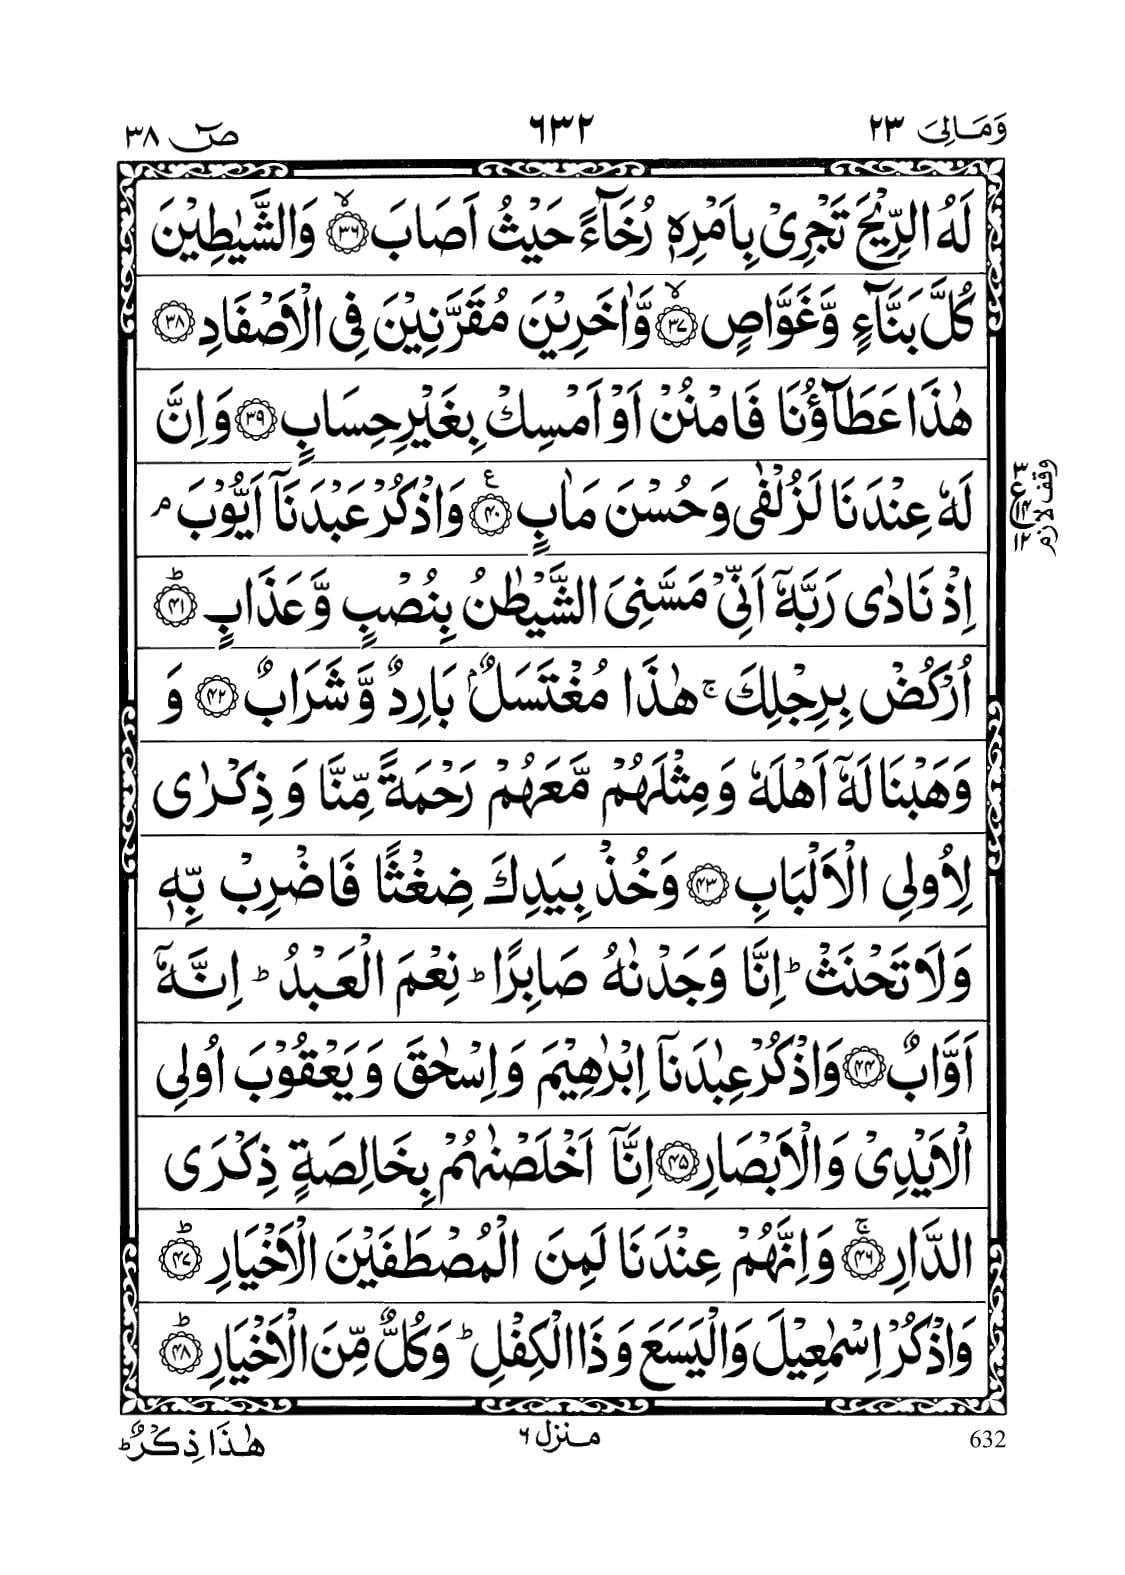 وَمَالِیَ ۲۳
۶۳۲
صٓ ۳۸
لَهُ الرِّيْحَ تَجْرِىْ بِاَمْرِهٖ رُخَآءً حَيْثُ اَصَابَ ۙ‏﴿۳۶﴾ وَالشَّيٰطِيْنَ
كُلَّ بَنَّآءٍ وَّغَوَّاصٍ ۙ‏﴿۳۷﴾ وَّاٰخَرِيْنَ مُقَرَّنِيْنَ فِى الْاَصْفَادِ ﴿۳۸﴾
هٰذَا عَطَآؤُنَا فَامْنُنْ اَوْ اَمْسِكْ بِغَيْرِ حِسَابٍ ﴿۳۹﴾ وَاِنَّ
لَهٗ عِنْدَنَا لَزُلْفٰى وَحُسْنَ مَاٰبٍ ﴿۴۰﴾ؑ وَاذْكُرْ عَبْدَنَاۤ اَيُّوْبَ ۘ
اِذْ نَادٰى رَبَّهٗۤ اَنِّىْ مَسَّنِىَ الشَّيْطٰنُ بِنُصْبٍ وَّعَذَابٍ ؕ‏﴿۴۱﴾
اُرْكُضْ بِرِجْلِكَ ۚ هٰذَا مُغْتَسَلٌۢ بَارِدٌ وَّشَرَابٌ ﴿۴۲﴾ وَ
وَهَبْنَا لَهٗۤ اَهْلَهٗ وَمِثْلَهُمْ مَّعَهُمْ رَحْمَةً مِّنَّا وَذِكْرٰى
لِاُولِى الْاَلْبَابِ ﴿۴۳﴾ وَخُذْ بِيَدِكَ ضِغْثًا فَاضْرِبْ بِّهٖ
وَلَا تَحْنَثْ ؕ اِنَّا وَجَدْنٰهُ صَابِرًا ؕ نِعْمَ الْعَبْدُ ؕ اِنَّهٗۤ
اَوَّابٌ ﴿۴۴﴾ وَاذْكُرْ عِبٰدَنَاۤ اِبْرٰهِيْمَ وَاِسْحٰقَ وَيَعْقُوْبَ اُولِى
الْاَيْدِىْ وَالْاَبْصَارِ ﴿۴۵﴾ اِنَّاۤ اَخْلَصْنٰهُمْ بِخَالِصَةٍ ذِكْرَى
الدَّارِ ۚ‏﴿۴۶﴾ وَاِنَّهُمْ عِنْدَنَا لَمِنَ الْمُصْطَفَيْنَ الْاَخْيَارِ ؕ‏﴿۴۷﴾
وَاذْكُرْ اِسْمٰعِيْلَ وَالْيَسَعَ وَذَا الْكِفْلِ ؕ وَكُلٌّ مِّنَ الْاَخْيَارِ ؕ‏﴿۴۸﴾
۳
ع
۱۴
۱۲
وقف لازم
632
منزل ۶
هٰذَا ذِكْرٌ ؕ